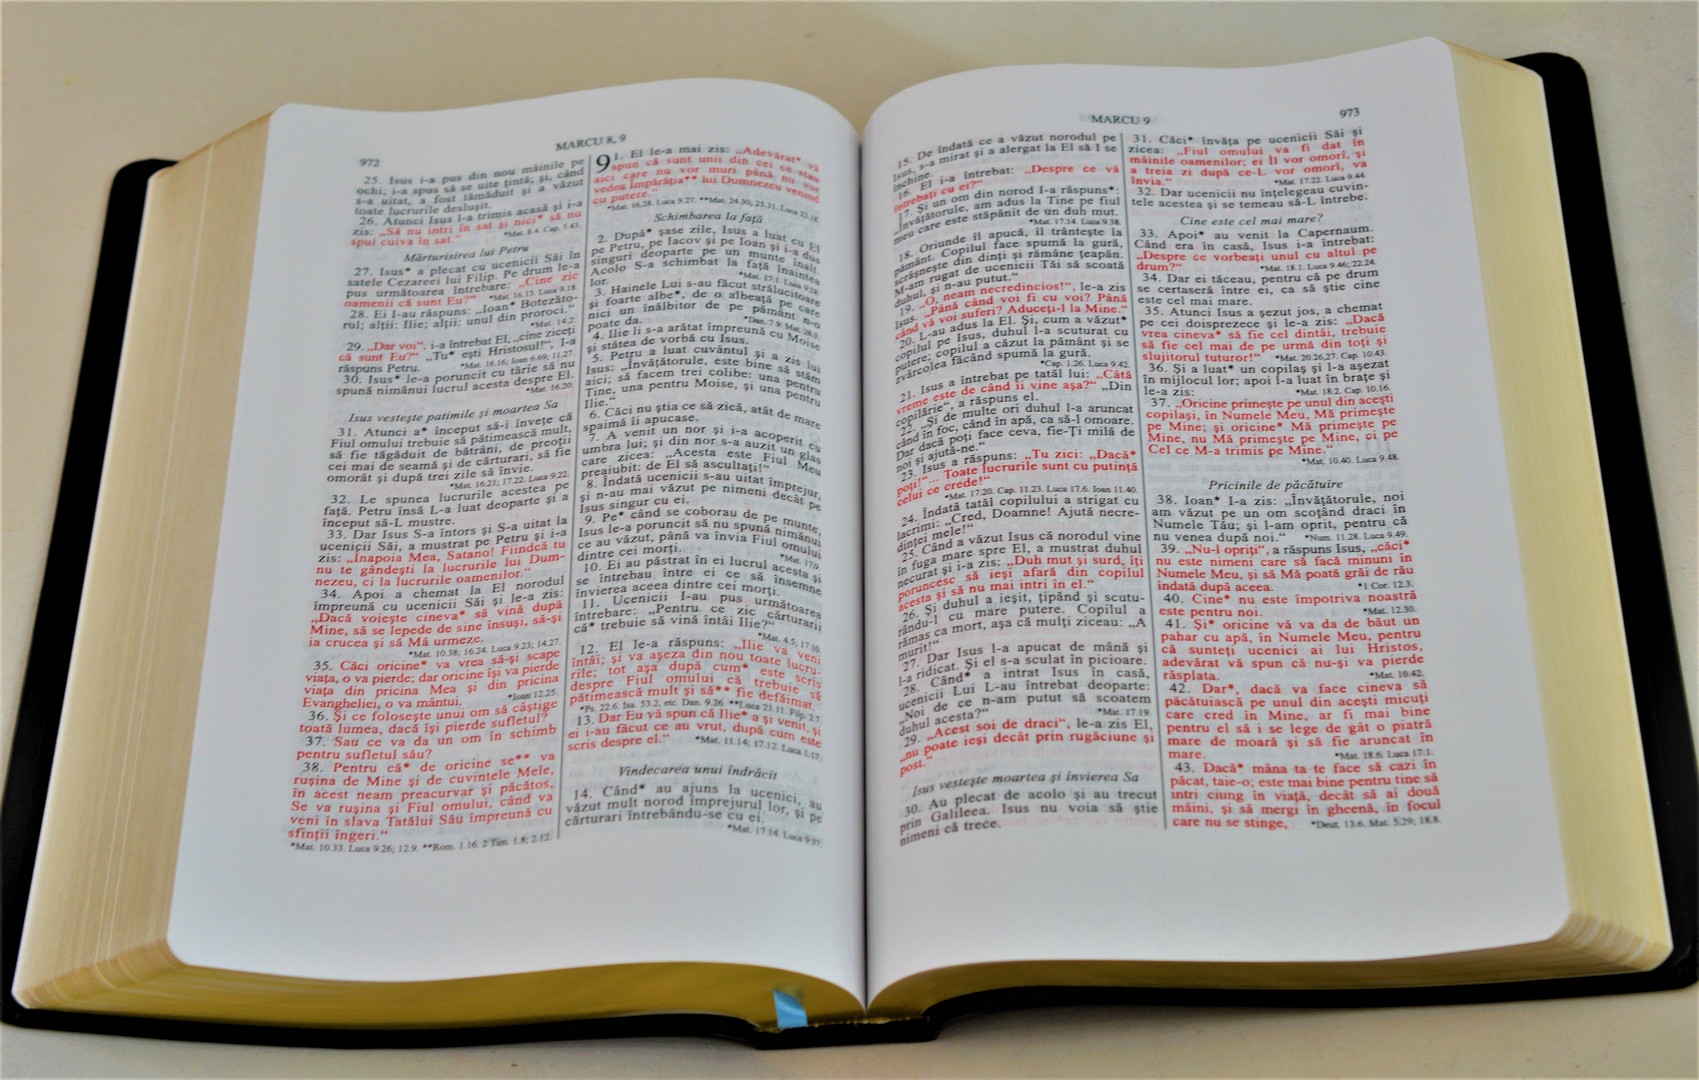 972
MARCU 8, 9
25. Isus i-a pus din nou mâinile pe
ochi; i-a spus să se uite ţintă; şi, când
s-a uitat, a fost tămăduit şi a văzut
toate lucrurile desluşit.
26. Atunci Isus l-a trimis acasă şi i-a
zis: „Să nu intri în sat şi nici* să nu
spui cuiva în sat.“ *Mat. 8.4. Cap. 5.43.
Mărturisirea lui Petru
27. Isus* a plecat cu ucenicii Săi în
satele Cezareei lui Filip. Pe drum le-a
pus următoarea întrebare: „Cine zic
oamenii că sunt Eu?“ *Mat. 16.13. Luca 9.18.
28. Ei I-au răspuns: „Ioan* Botezăto-
rul; alţii: Ilie; alţii: unul din proroci.“
*Mat. 14.2.
29. „Dar voi“, i-a întrebat El, „cine ziceţi
că sunt Eu?“ „Tu* eşti Hristosul!“, I-a
răspuns Petru. *Mat. 16.16; Ioan 6.69; 11.27.
30. Isus* le-a poruncit cu tărie să nu
spună nimănui lucrul acesta despre El.
*Mat. 16.20.
Isus vesteşte patimile şi moartea Sa
31. Atunci a* început să-i înveţe că
Fiul omului trebuie să pătimească mult,
să fie tăgăduit de bătrâni, de preoţii
cei mai de seamă şi de cărturari, să fie
omorât şi după trei zile să învie.
*Mat. 16.21; 17.22. Luca 9.22.
32. Le spunea lucrurile acestea pe
faţă. Petru însă L-a luat deoparte şi a
început să-L mustre.
33. Dar Isus S-a întors şi S-a uitat la
ucenicii Săi, a mustrat pe Petru şi i-a
zis: „Înapoia Mea, Satano! Fiindcă tu
nu te gândeşti la lucrurile lui Dum-
nezeu, ci la lucrurile oamenilor.“
34. Apoi a chemat la El norodul
împreună cu ucenicii Săi şi le-a zis:
„Dacă voieşte cineva* să vină după
Mine, să se lepede de sine însuşi, să-şi
ia crucea şi să Mă urmeze.
*Mat. 10.38; 16.24. Luca 9.23; 14.27.
35. Căci oricine* va vrea să-şi scape
viaţa, o va pierde; dar oricine îşi va pierde
viaţa din pricina Mea şi din pricina
Evangheliei, o va mântui. *Ioan 12.25.
36. Şi ce foloseşte unui om să câştige
toată lumea, dacă îşi pierde sufletul?
37. Sau ce va da un om în schimb
pentru sufletul său?
38. Pentru că* de oricine se** va
ruşina de Mine şi de cuvintele Mele,
în acest neam preacurvar şi păcătos,
Se va ruşina şi Fiul omului, când va
veni în slava Tatălui Său împreună cu
sfinţii îngeri.“
*Mat. 10.33. Luca 9.26; 12.9. **Rom. 1.16. 2 Tim. 1.8; 2.12.
9 1. El le-a mai zis: „Adevărat* vă
spun că sunt unii din cei ce stau
aici care nu vor muri până nu vor
vedea Împărăţia** lui Dumnezeu venind
cu putere.“
*Mat. 16.28. Luca 9.27. **Mat. 24.30; 25.31. Luca 22.18.
Schimbarea la faţă
2. După* şase zile, Isus a luat cu El
pe Petru, pe Iacov şi pe Ioan şi i-a dus
singuri deoparte pe un munte înalt.
Acolo S-a schimbat la faţă înaintea
lor. *Mat. 17.1. Luca 9.28.
3. Hainele Lui s-au făcut strălucitoare
şi foarte albe*, de o albeaţă pe care
nici un înălbitor de pe pământ n-o
poate da. *Dan. 7.9. Mat. 28.3.
4. Ilie li s-a arătat împreună cu Moise
şi stătea de vorbă cu Isus.
5. Petru a luat cuvântul şi a zis lui
Isus: „Învăţătorule, este bine să stăm
aici; să facem trei colibe: una pentru
Tine, una pentru Moise, şi una pentru
Ilie.“
6. Căci nu ştia ce să zică, atât de mare
spaimă îi apucase.
7. A venit un nor şi i-a acoperit cu
umbra lui; şi din nor s-a auzit un glas
care zicea: „Acesta este Fiul Meu
preaiubit: de El să ascultaţi!“
8. Îndată ucenicii s-au uitat împrejur,
şi n-au mai văzut pe nimeni decât pe
Isus singur cu ei.
9. Pe* când se coborau de pe munte,
Isus le-a poruncit să nu spună nimănui
ce au văzut, până va învia Fiul omului
dintre cei morţi. *Mat. 17.9.
10. Ei au păstrat în ei lucrul acesta şi
se întrebau între ei ce să însemne
învierea aceea dintre cei morţi.
11. Ucenicii I-au pus următoarea
întrebare: „Pentru ce zic cărturarii
că* trebuie să vină întâi Ilie?“
*Mat. 4.5; 17.10.
12. El le-a răspuns: „Ilie va veni
întâi; şi va aşeza din nou toate lucru-
rile; tot aşa după cum* este scris
despre Fiul omului că trebuie să
pătimească mult şi să** fie defăimat.
*Ps. 22.6. Isa. 53.2, etc. Dan. 9.26. **Luca 23.11. Filp. 2.7.
13. Dar Eu vă spun că Ilie* a şi venit, şi
ei i-au făcut ce au vrut, după cum este
scris despre el.“ *Mat. 11.14; 17.12. Luca 1.17.
Vindecarea unui îndrăcit
14. Când* au ajuns la ucenici, au
văzut mult norod împrejurul lor, şi pe
cărturari întrebându-se cu ei.
*Mat. 17.14. Luca 9.37.
MARCU 9
973
15. De îndată ce a văzut norodul pe
Isus, s-a mirat şi a alergat la El să I se
închine.
16. El i-a întrebat: „Despre ce vă
întrebaţi cu ei?“
17. Şi un om din norod I-a răspuns*:
„Învăţătorule, am adus la Tine pe fiul
meu care este stăpânit de un duh mut.
*Mat. 17.14. Luca 9.38.
18. Oriunde îl apucă, îl trânteşte la
pământ. Copilul face spumă la gură,
scrâşneşte din dinţi şi rămâne ţeapăn.
M-am rugat de ucenicii Tăi să scoată
duhul, şi n-au putut.“
19. „O, neam necredincios!“, le-a zis
Isus. „Până când voi fi cu voi? Până
când vă voi suferi? Aduceţi-l la Mine.“
20. L-au adus la El. Şi, cum a văzut*
copilul pe Isus, duhul l-a scuturat cu
putere; copilul a căzut la pământ şi se
zvârcolea făcând spumă la gură.
*Cap. 1.26. Luca 9.42.
21. Isus a întrebat pe tatăl lui: „Câtă
vreme este de când îi vine aşa?“ „Din
copilărie“, a răspuns el.
22. „Şi de multe ori duhul l-a aruncat
când în foc, când în apă, ca să-l omoare.
Dar dacă poţi face ceva, fie-Ţi milă de
noi şi ajută-ne.“
23. Isus a răspuns: „Tu zici: „Dacă*
poţi!“... Toate lucrurile sunt cu putinţă
celui ce crede!“
*Mat. 17.20. Cap. 11.23. Luca 17.6. Ioan 11.40.
24. Îndată tatăl copilului a strigat cu
lacrimi: „Cred, Doamne! Ajută necre-
dinţei mele!“
25. Când a văzut Isus că norodul vine
în fuga mare spre El, a mustrat duhul
necurat şi i-a zis: „Duh mut şi surd, îţi
poruncesc să ieşi afară din copilul
acesta şi să nu mai intri în el.“
26. Şi duhul a ieşit, ţipând şi scutu-
rându-l cu mare putere. Copilul a
rămas ca mort, aşa că mulţi ziceau: „A
murit!“
27. Dar Isus l-a apucat de mână şi
l-a ridicat. Şi el s-a sculat în picioare.
28. Când* a intrat Isus în casă,
ucenicii Lui L-au întrebat deoparte:
„Noi de ce n-am putut să scoatem
duhul acesta?“ *Mat. 17.19.
29. „Acest soi de draci“, le-a zis El,
„nu poate ieşi decât prin rugăciune şi
post.“
Isus vesteşte moartea şi învierea Sa
30. Au plecat de acolo şi au trecut
prin Galileea. Isus nu voia să ştie
nimeni că trece.
31. Căci* învăţa pe ucenicii Săi şi
zicea: „Fiul omului va fi dat în
mâinile oamenilor; ei Îl vor omorî, şi
a treia zi după ce-L vor omorî, va
învia.“ *Mat. 17.22. Luca 9.44.
32. Dar ucenicii nu înţelegeau cuvin-
tele acestea şi se temeau să-L întrebe.
Cine este cel mai mare?
33. Apoi* au venit la Capernaum.
Când era în casă, Isus i-a întrebat:
„Despre ce vorbeaţi unul cu altul pe
drum?“ *Mat. 18.1. Luca 9.46; 22.24.
34. Dar ei tăceau, pentru că pe drum
se certaseră între ei, ca să ştie cine
este cel mai mare.
35. Atunci Isus a şezut jos, a chemat
pe cei doisprezece şi le-a zis: „Dacă
vrea cineva* să fie cel dintâi, trebuie
să fie cel mai de pe urmă din toţi şi
slujitorul tuturor!“ *Mat. 20.26,27. Cap. 10.43.
36. Şi a luat* un copilaş şi l-a aşezat
în mijlocul lor; apoi l-a luat în braţe şi
le-a zis: *Mat. 18.2. Cap. 10.16.
37. „Oricine primeşte pe unul din aceşti
copilaşi, în Numele Meu, Mă primeşte
pe Mine; şi oricine* Mă primeşte pe
Mine, nu Mă primeşte pe Mine, ci pe
Cel ce M-a trimis pe Mine.“
*Mat. 10.40. Luca 9.48.
Pricinile de păcătuire
38. Ioan* I-a zis: „Învăţătorule, noi
am văzut pe un om scoţând draci în
Numele Tău; şi l-am oprit, pentru că
nu venea după noi.“ *Num. 11.28. Luca 9.49.
39. „Nu-l opriţi“, a răspuns Isus, „căci*
nu este nimeni care să facă minuni în
Numele Meu, şi să Mă poată grăi de rău
îndată după aceea. *1 Cor. 12.3.
40. Cine* nu este împotriva noastră
este pentru noi. *Mat. 12.30.
41. Şi* oricine vă va da de băut un
pahar cu apă, în Numele Meu, pentru
că sunteţi ucenici ai lui Hristos,
adevărat vă spun că nu-şi va pierde
răsplata. *Mat. 10.42.
42. Dar*, dacă va face cineva să
păcătuiască pe unul din aceşti micuţi
care cred în Mine, ar fi mai bine
pentru el să i se lege de gât o piatră
mare de moară şi să fie aruncat în
mare. *Mat. 18.6. Luca 17.1.
43. Dacă* mâna ta te face să cazi în
păcat, taie-o; este mai bine pentru tine să
intri ciung în viaţă, decât să ai două
mâini, şi să mergi în gheenă, în focul
care nu se stinge, *Deut. 13.6. Mat. 5.29; 18.8.